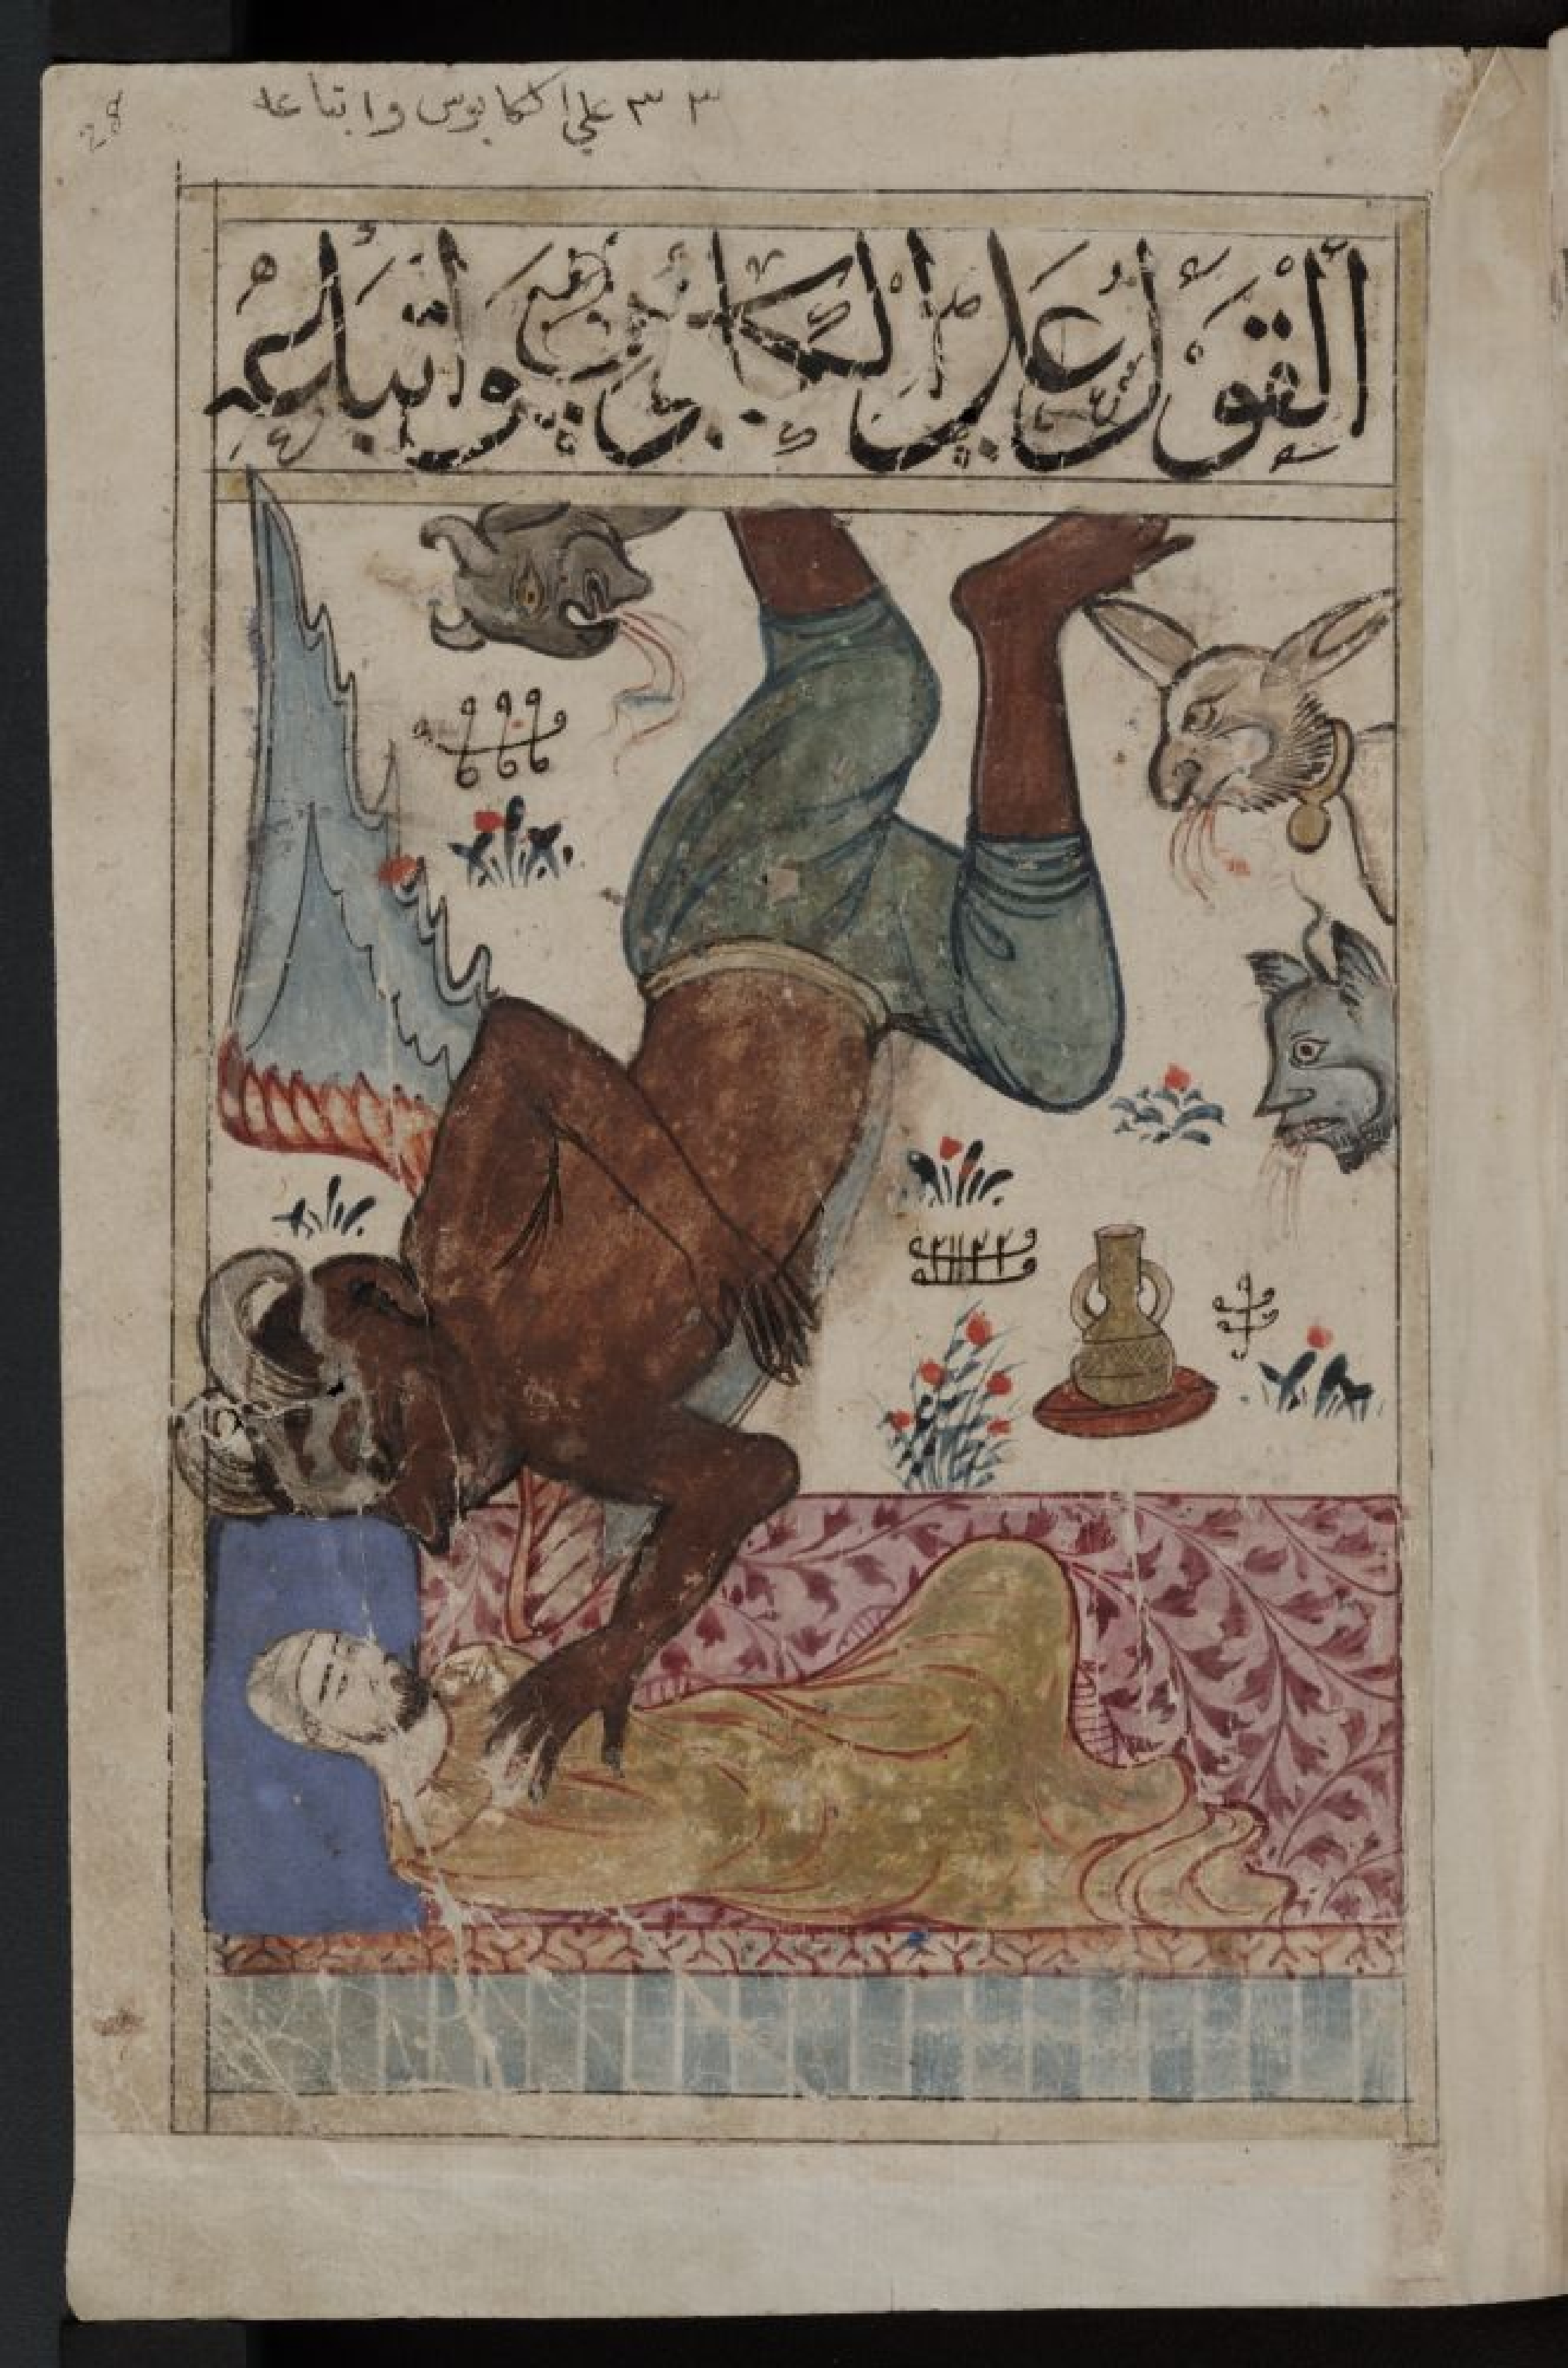 ٣٣ على الكابوس واتباعه
28
اَلْقَوْلُ عَلَى الْكَابُوسِ وَاَتْبَاعِهِ